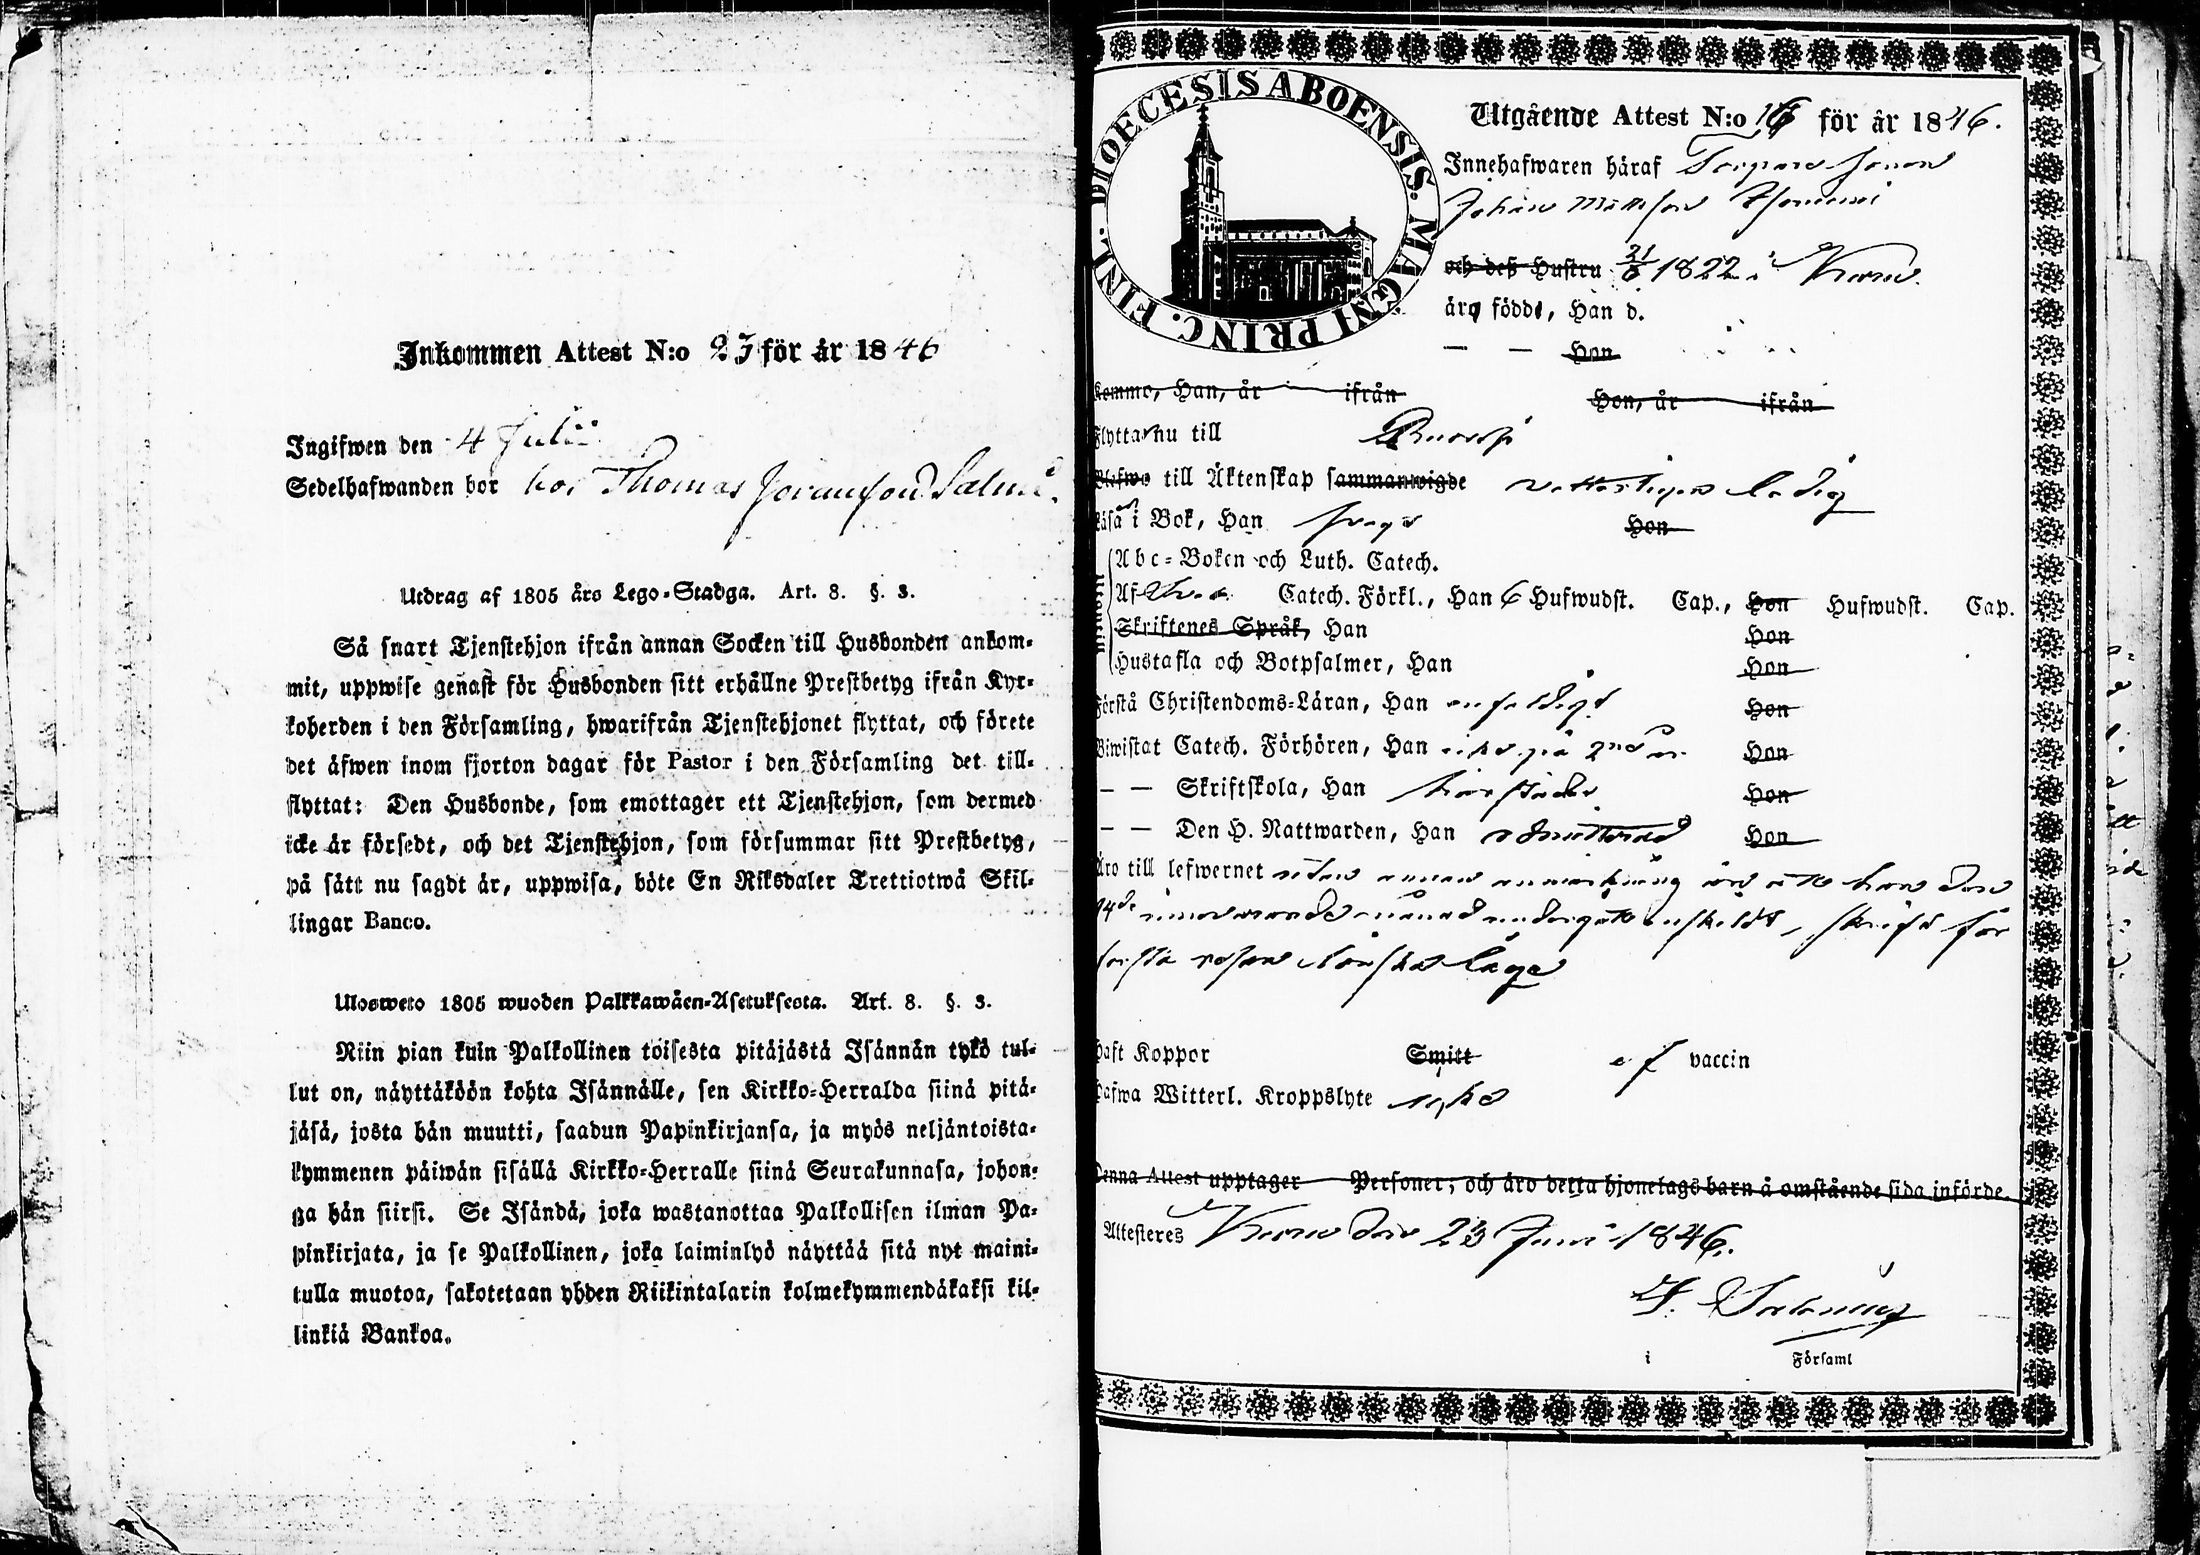 Inkommen Attest N:o 23 för år 1846
Ingifwen den 4 Julii
Sedelhafwanden bor hos Thomas
Utdrag af 1805 års Lego-Stadga. Art. 8. §. 3.
Så snart Tjenstehjon ifrån annan Socken till Husbonden ankom-
mit, uppwise genast för Husbonden sitt erhållne Prestbetyg ifrån Kyr-
koherden i den Församling, hwarifrån Tjenstehjonet flyttat, och förete
det äfwen inom fjorton dagar för Pastor i den Församling det till-
flyttat: Den Husbonde, som emottager ett Tjenstehjon, som dermed
icke är försedt, och det Tjenstehjon, som försummar sitt Prestbetyg,
på sätt nu sagdt är, uppwisa, böte En Riksdaler Trettiotwå Skil-
lingar Banco.
Ulosweto 1805 wuoden Palkkawäen-Asetuksesta. Art. 8. §. 3.
Niin pian kuin Palkollinen toisesta pitäjästä Isännän tykö tul-
lut on, näyttäköön kohta Isännälle, sen Kirkko-Herralda siinä pitä-
jäsä, josta hän muutti, saadun Papinkirjansa, ja myös neljäntoista-
kymmenen päiwän sisällä Kirkko-Herralle siinä Seurakunnasa, johon-
ga hän siirsi. Se Isändä, joka wastanottaa Palkollisen ilman Pa-
pinkirjata, ja se Palkollinen, joka laiminlyö näyttää sitä nyt maini-
tulla muotoa, sakotetaan yhden Riikintalarin kolmekymmendäkaksi kil-
linkiä Bankoa.
DIOECESIS ABOENSIS. MAGNI PRINC. FINL.
Utgående Attest N:o 16 för år 1846.
Innehafwaren häraf
Johan Mattsson
och dess Hustru 21/6 1822 i
äro födde, Han d.
— — Hon
Kommo, Han, år ifrån Hon, år ifrån
Flytta nu till
Blefwo till Äktenskap sammanwigde ledig
Läsa i Bok, Han Hon
Abc-Boken och Luth. Catech.
Af Catech. Förkl., Han 6 Hufwudst. Cap., Hon Hufwudst. Cap.
Skriftenes Språk, Han Hon
Hustafla och Botpsalmer, Han Hon
Förstå Christendoms-Läran, Han enfaldigt Hon
Biwistat Catech. Förhören, Han icke på 2 Hon
— — Skriftskola, Han Hon
— — Den H. Nattwarden, Han admitterad Hon
Äro till lefwernet utan annan anmärkning än att han den
14de innewarande månad undergått enskildt skrift för
första resan
Haft Koppor Smitt af vaccin
Hafwa Witterl. Kroppslyte
Denna Attest upptager Personer, och äro detta hjonelags barn å omstående sida införde.
Attesteres den 23 Juni 1846.
i Församl